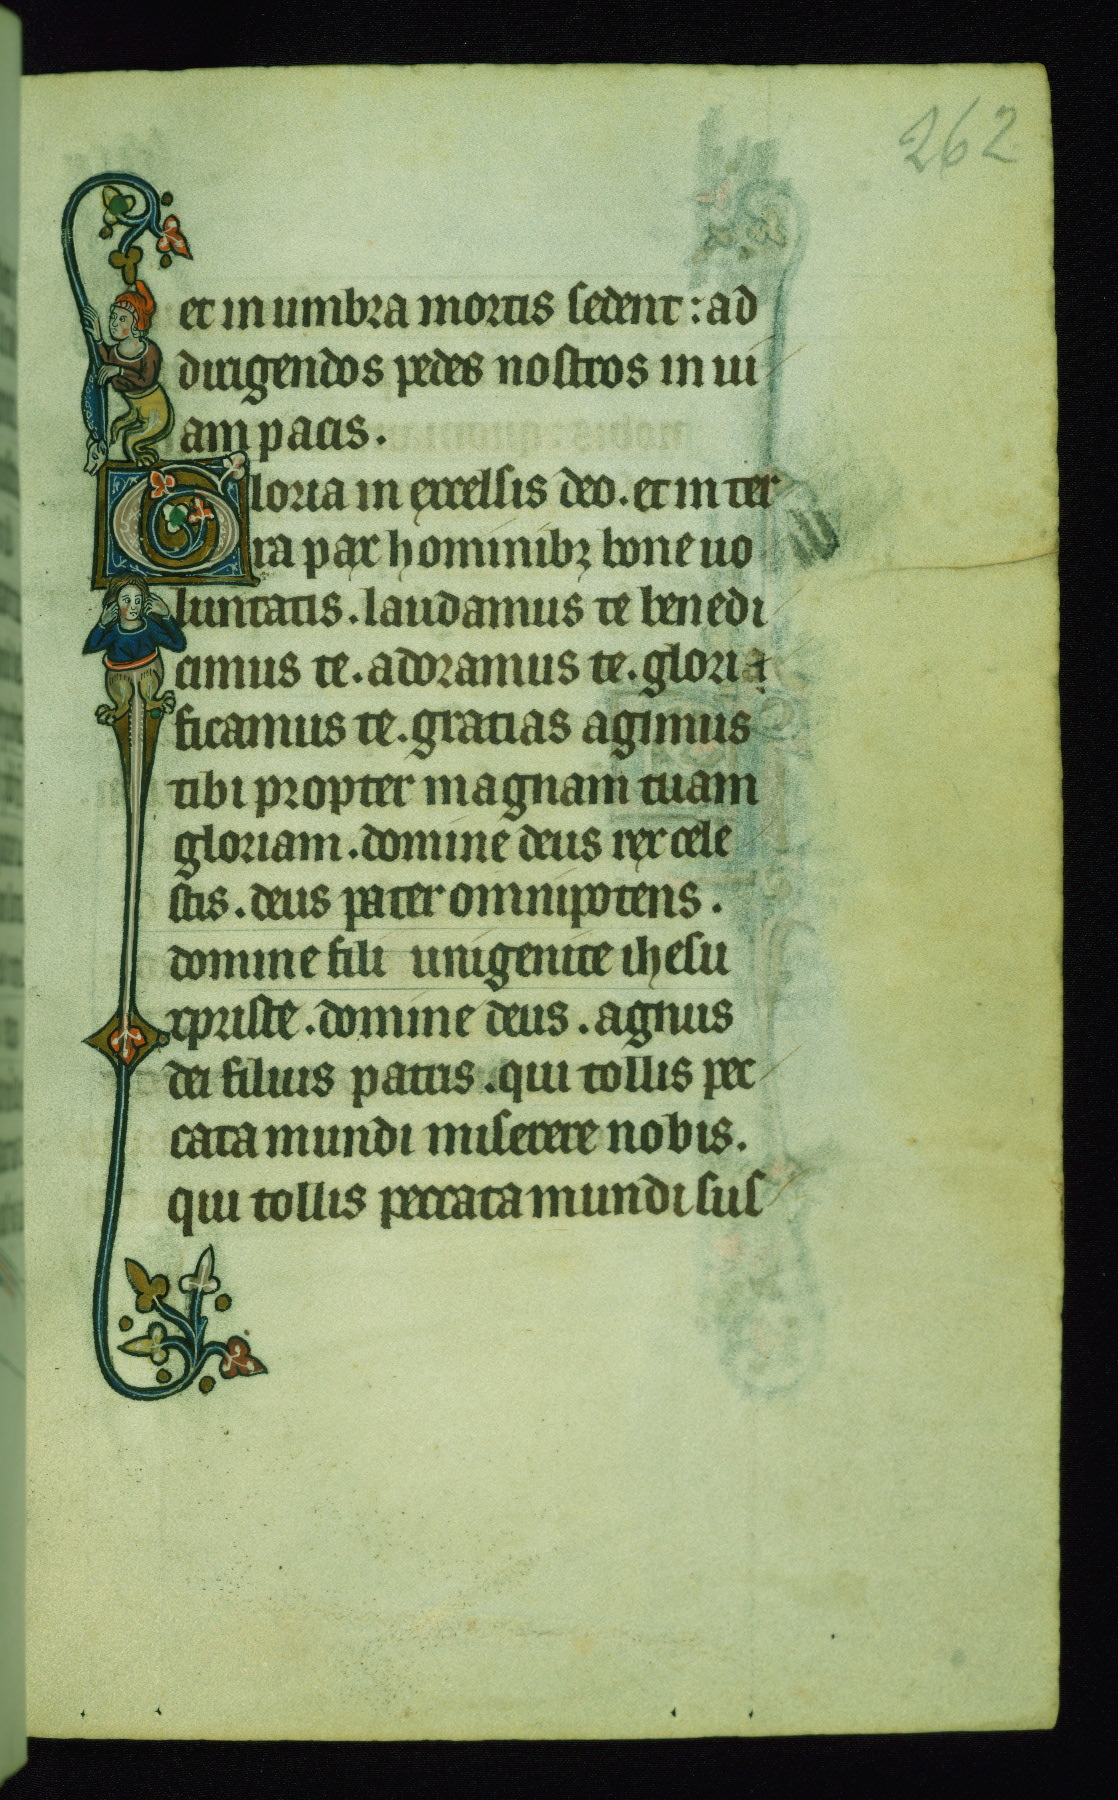 262
et in umbra mortis sedent : ad
dirigendos pedes nostros in ui
am pacis.
Gloria in excelsis deo. et in ter
ra pax hominibꝫ bone uo
luntatis. laudamus te benedi
cimus te. adoramus te. gloria
ficamus te. gratias agimus
tibi propter magnam tuam
gloriam. domine deus rex cele
stis. deus pater omnipotens.
domine fili unigenite ihesu
xpriste. domine deus. agnus
dei filius patris. qui tollis pec
cata mundi miserere nobis.
qui tollis peccata mundi sus